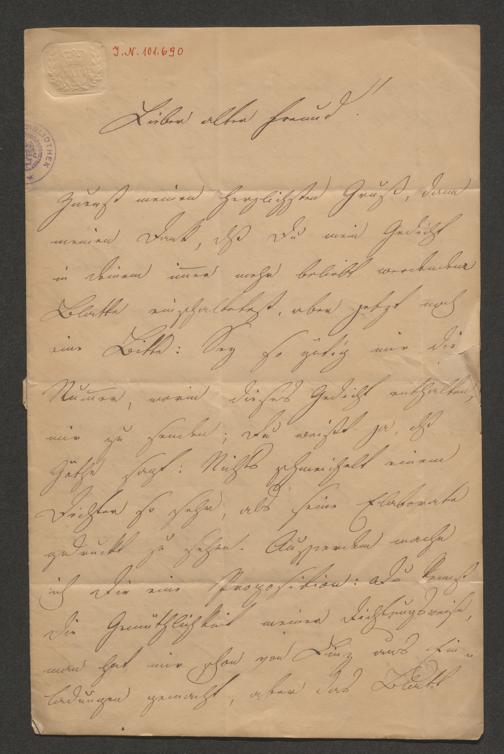 J.N. 101.690
BIBLIOTHEK
Lieber alter Freund!
Zuerst meinen herzlichsten Gruß, dann
meinen Dank, dß Du mein Gedicht
in deinem immer mehr beliebt werdenden
Blatte einschaltetest, aber jetzt noch
eine Bitte: Sey so gütig mir die
Nummer, worin dieses Gedicht enthalten,
mir zu senden; Du weißt ja, dß
Göthe sagt: Nichts schmeichelt einem
Dichter so sehr, als seine Elaborate
gedruckt zu sehen. Ausserdem mache
ich Dir eine Proposition: Du kennst
die Gemüthlichkeit meiner Dichtungsweise,
man hat mir schon von Linz aus Ein-
ladungen gemacht, aber das Blatt